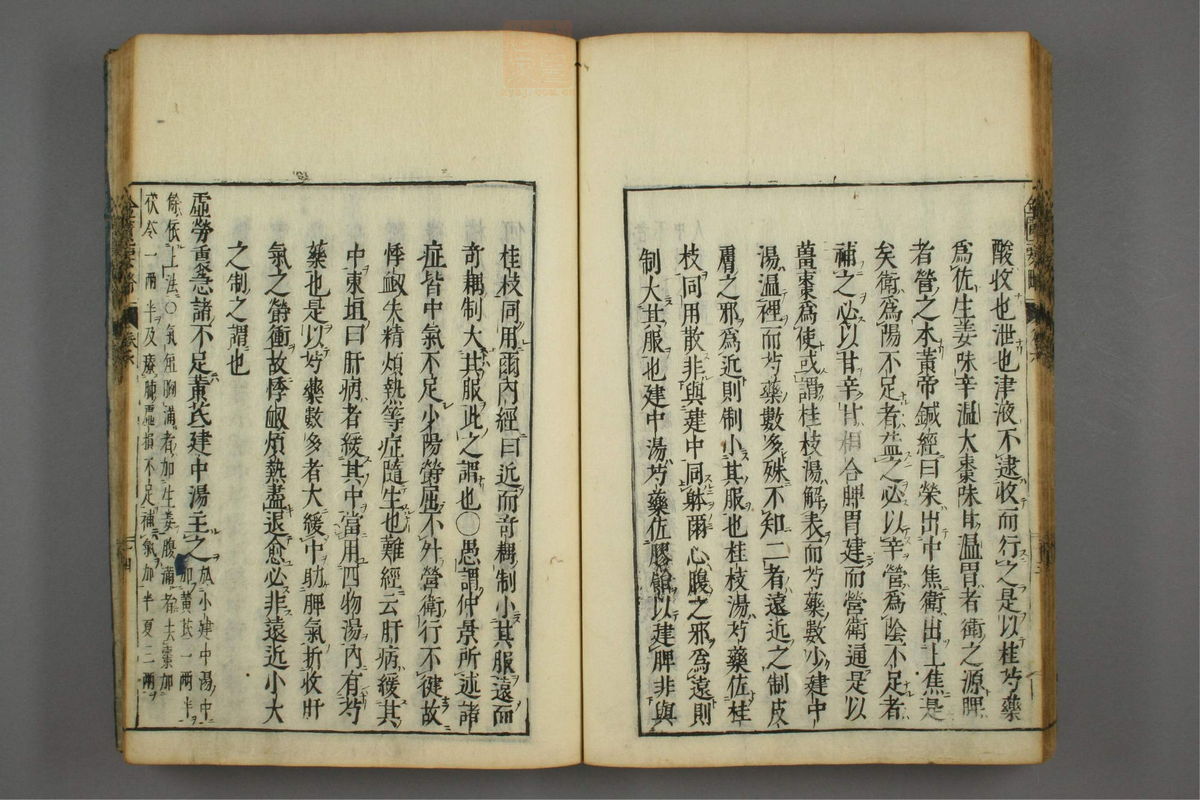 酸收也泄也津液不逮收而行之是以桂芍藥
爲佐生姜味辛温大棗味甘温胃者衛之源脾
者營之本黃帝鍼經曰榮出中焦衛出上焦是
矣衛爲陽不足者益之必以辛營爲陰不足者
補之必以甘辛甘相合脾胃建而營衛通是以
薑棗爲使或謂桂枝湯解表而芍藥數少建中
湯温裡而芍藥數多殊不知二者遠近之制皮
膚之邪爲近則制小其服也桂枝湯芍藥佐桂
枝同用散非與建中同躰爾心腹之邪爲遠則
制大其服也建中湯芍藥佐膠飴以建脾非與
桂枝同用爾内經曰近而奇耦制小其服遠而
奇耦制大其服此之謂也〇愚謂仲景所述諸
症皆中氣不足少陽欝屈不外營衛行不徤故
悸衂失精煩熱等症隨生也難經云肝病緩其
中東垣曰肝病者緩其中當用四物湯内有芍
藥也是以芍藥數多者大緩中助脾氣折收肝
氣之欝衝故悸衂煩熱盡退愈必非遠近小大
之制之謂也
虛勞裏急諸不足黃芪建中湯主之
於小建中湯中
加黃芪一兩半
餘依上法〇氣短胸滿者加生姜腹滿者去棗加
茯苓一兩半及療肺虛損不足補氣加半夏三兩